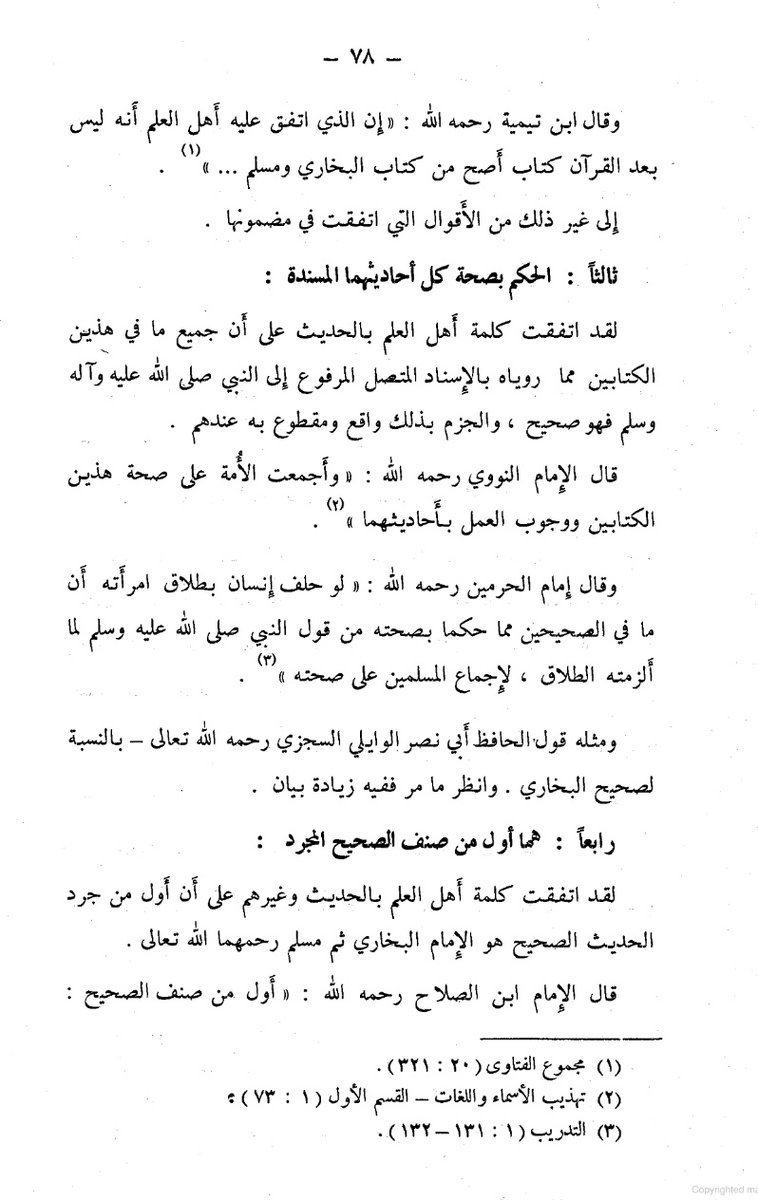 – ٧٨ –
وقال ابن تيمية رحمه الله : «إِن الذي اتفق عليه أَهل العلم أَنه ليس
بعد القرآن كتاب أَصح من كتاب البخاري ومسلم ... »(١) .
إِلى غير ذلك من الأَقوال التي اتفقت في مضمونها .
ثالثاً : الحكم بصحة كل أحاديثهما المسندة :
لقد اتفقت كلمة أَهل العلم بالحديث على أَن جميع ما في هذين
الكتابين مما روياه بالإِسناد المتصل المرفوع إِلى النبي صلى الله عليه وآله
وسلم فهو صحيح ، والجزم بذلك واقع ومقطوع به عندهم .
قال الإِمام النووي رحمه الله : «وأَجمعت الأُمة على صحة هذين
الكتابين ووجوب العمل بأَحاديثهما »(٢) .
وقال إِمام الحرمين رحمه الله : « لو حلف إِنسان بطلاق امرأَته أَن
ما في الصحيحين مما حكما بصحته من قول النبي صلى الله عليه وسلم لما
أَلزمته الطلاق ، لإِجماع المسلمين على صحته »(٣) .
ومثله قول الحافظ أَبي نصر الوايلي السجزي رحمه الله تعالى – بالنسبة
لصحيح البخاري . وانظر ما مر ففيه زيادة بيان .
رابعاً : هما أول من صنف الصحيح المجرد :
لقد اتفقت كلمة أَهل العلم بالحديث وغيرهم على أَن أَول من جرد
الحديث الصحيح هو الإِمام البخاري ثم مسلم رحمهما الله تعالى .
قال الإِمام ابن الصلاح رحمه الله : « أَول من صنف الصحيح :
(١) مجموع الفتاوى (٢٠ : ٣٢١) .
(٢) تهذيب الأسماء واللغات – القسم الأول (١ : ٧٣) ؛
(٣) التدريب (١ : ١٣١ – ١٣٢) .
Copyrighted ma